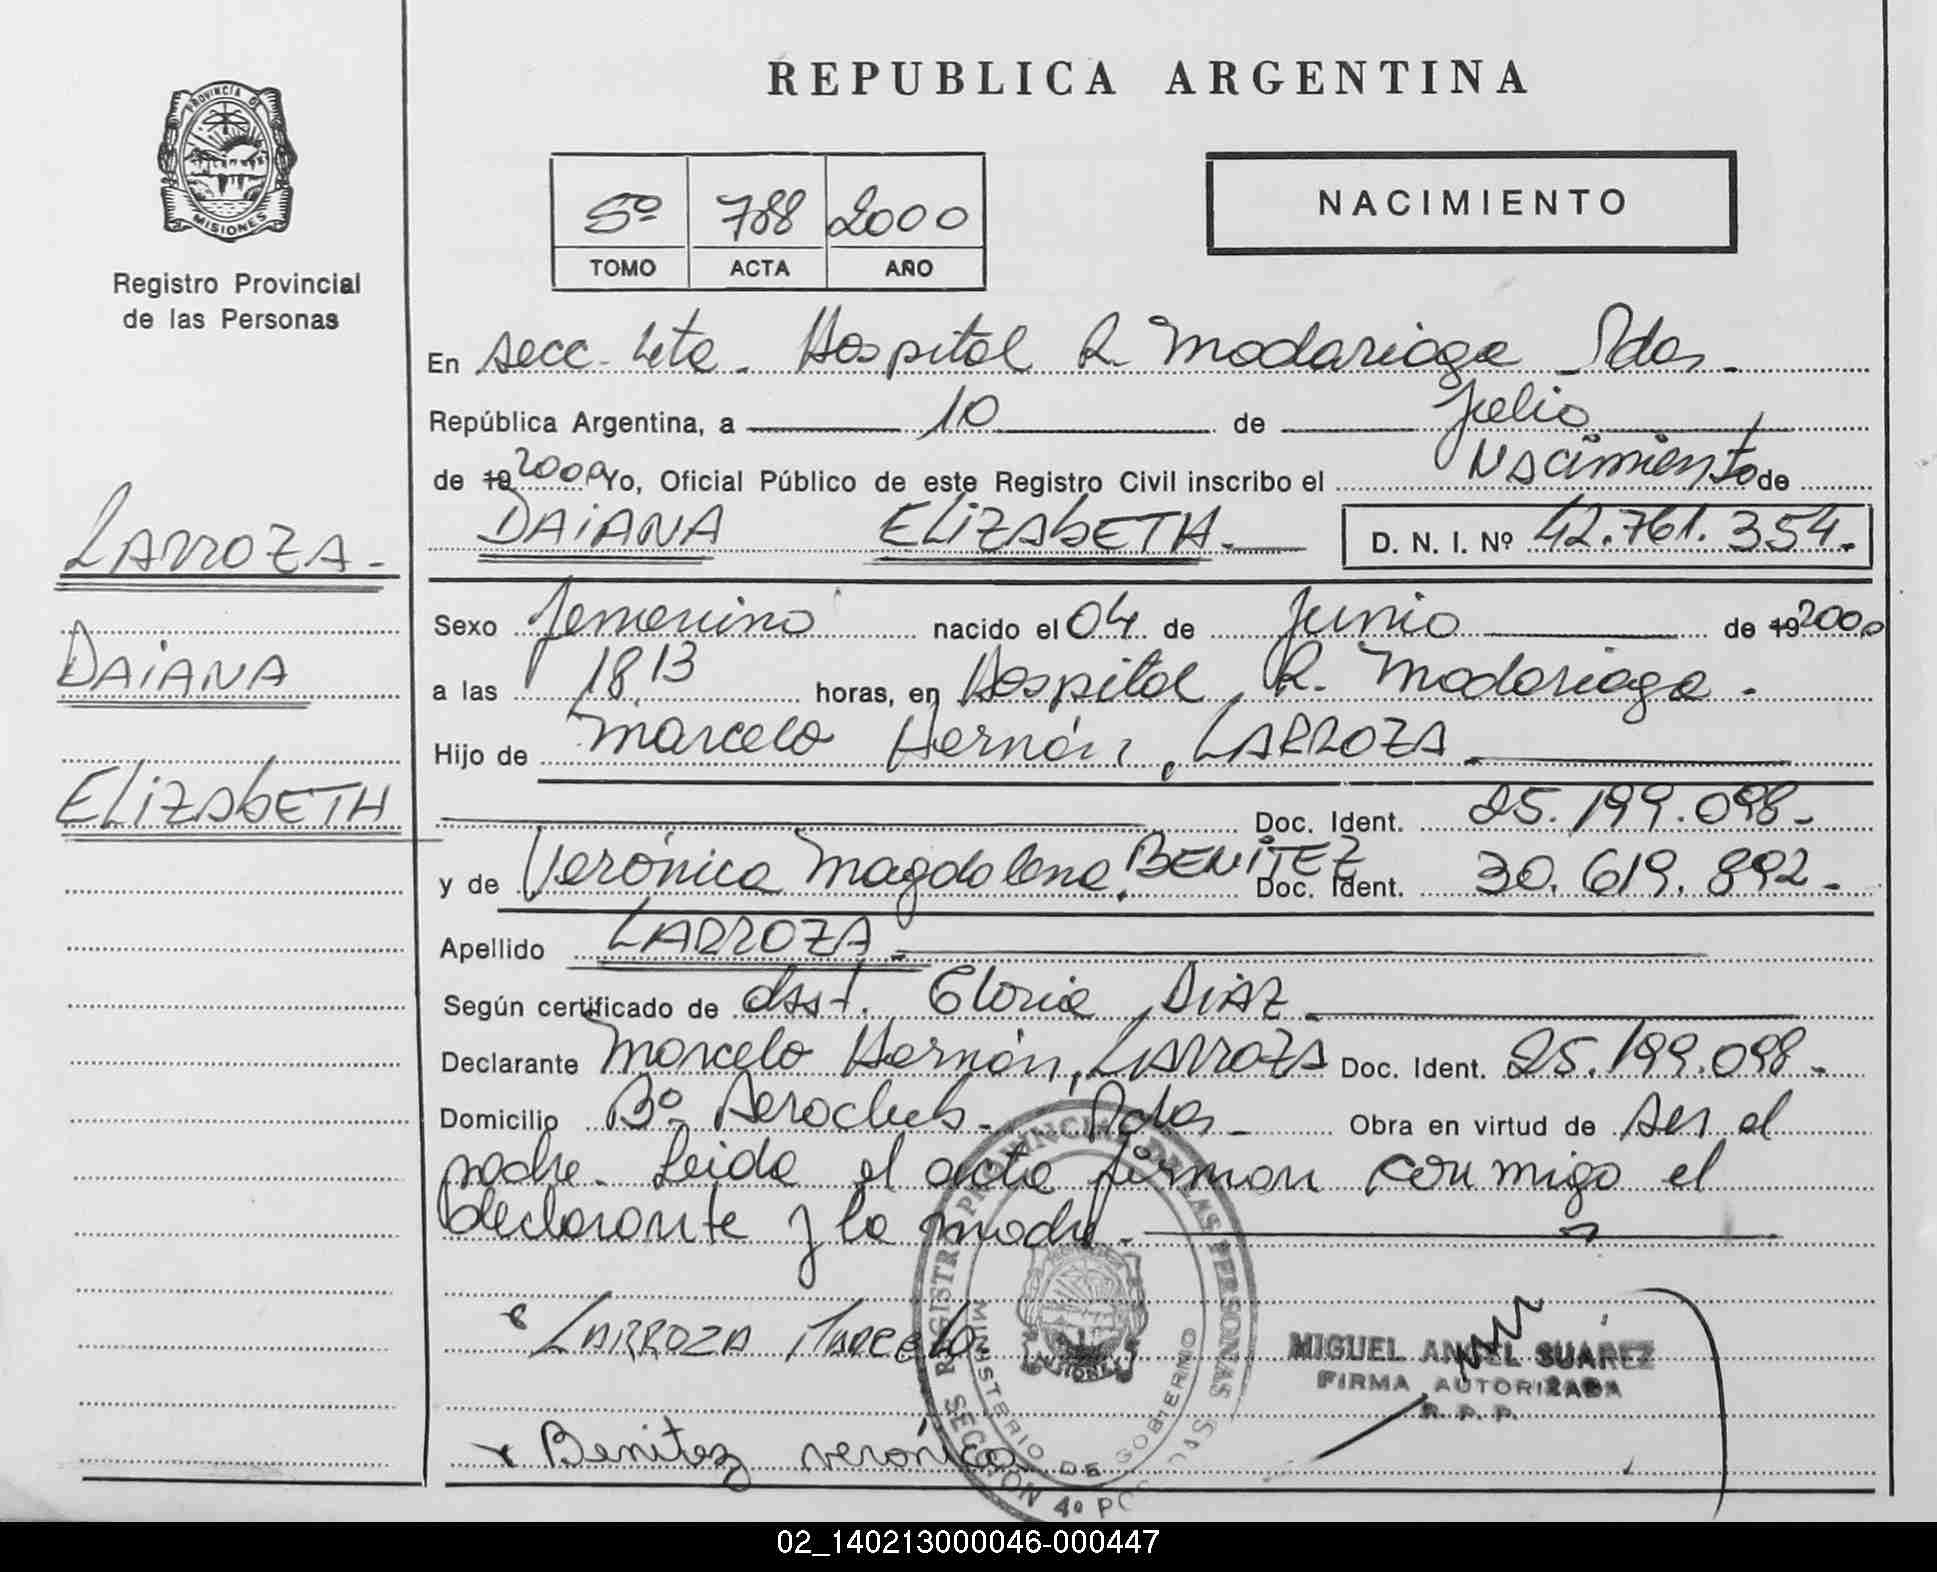 REPUBLICA ARGENTINA
PROVINCIA DE
MISIONES
Registro Provincial
de las Personas
5º 788 2000
TOMO ACTA AÑO
NACIMIENTO
En secc. 4ta. Hospital R. Madariaga Pdas.
República Argentina, a 10 de Julio
de 19 2000 Yo, Oficial Público de este Registro Civil inscribo el Nacimiento de
DAIANA ELIZAbETH. D. N. I. Nº 42.761.354.
LARROZA.
DAIANA
ELIZAbETH
Sexo femenino nacido el 04 de Junio de 19 2000
a las 18 13 horas, en Hospital R. Madariaga.
Hijo de Marcelo Hernán, LARROZA
Doc. Ident. 25.199.098.
y de Verónica Magdalena, BENITEZ Doc. Ident. 30.619.892.
Apellido LARROZA.
Según certificado de obst. Gloria DIAZ
Declarante Marcelo Hernán, LARROZA Doc. Ident. 25.199.098.
Domicilio Bº Aeroclub. Pdas. Obra en virtud de ser el
padre. Leida el acta firman conmigo el
declarante y la madre.
LARROZA Marcelo
MIGUEL ANGEL SUAREZ
FIRMA AUTORIZADA
R. P. P.
Benitez verónica
REGISTRO PROVINCIAL DE LAS PERSONAS
MINISTERIO DE GOBIERNO
SECCIÓN 4º
MISIONES
02_140213000046-000447